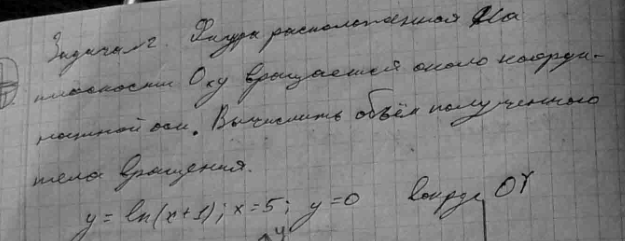 Задача №2. Фигура расположенная на
плоскости Оxy вращается около коорди-
натной оси. Вычислить объём полученного
тела вращения.
y = ln(x+1); x=5; y=0 вокруг OY
y